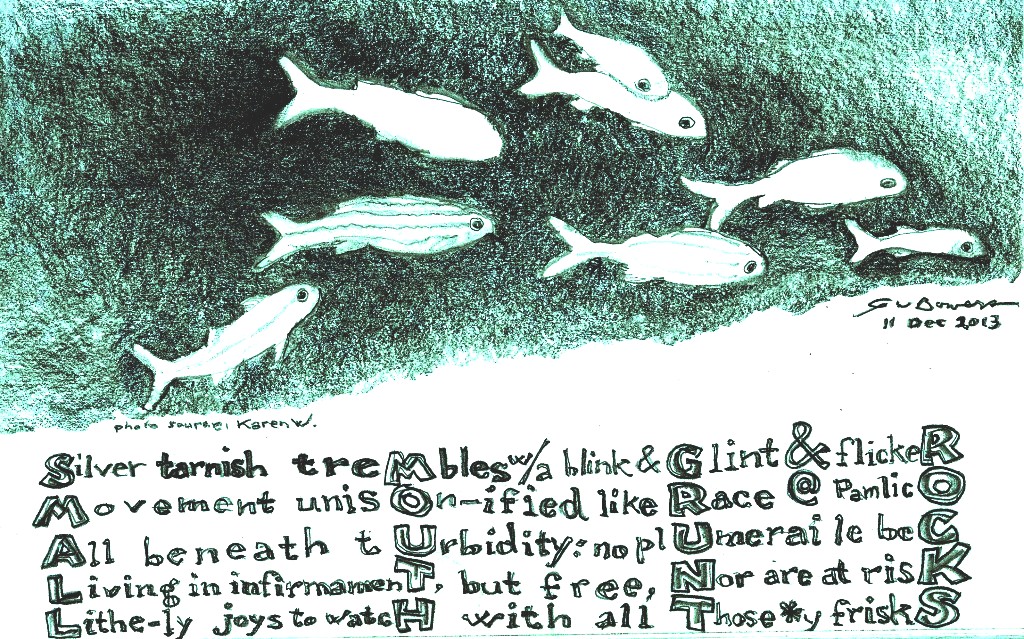 G v Bowers
11 Dec 2013
photo source; Karen W.
Silver tarnish treMbles w/a blink & Glint & flickeR
Movement unisOn-ified like Race @ PamlicO
All beneath tUrbidity: no plUmerai le be C
Living in infirmamenT, but free, Nor are at risK
Lithe-ly joys to watcH with all Those*y friskS